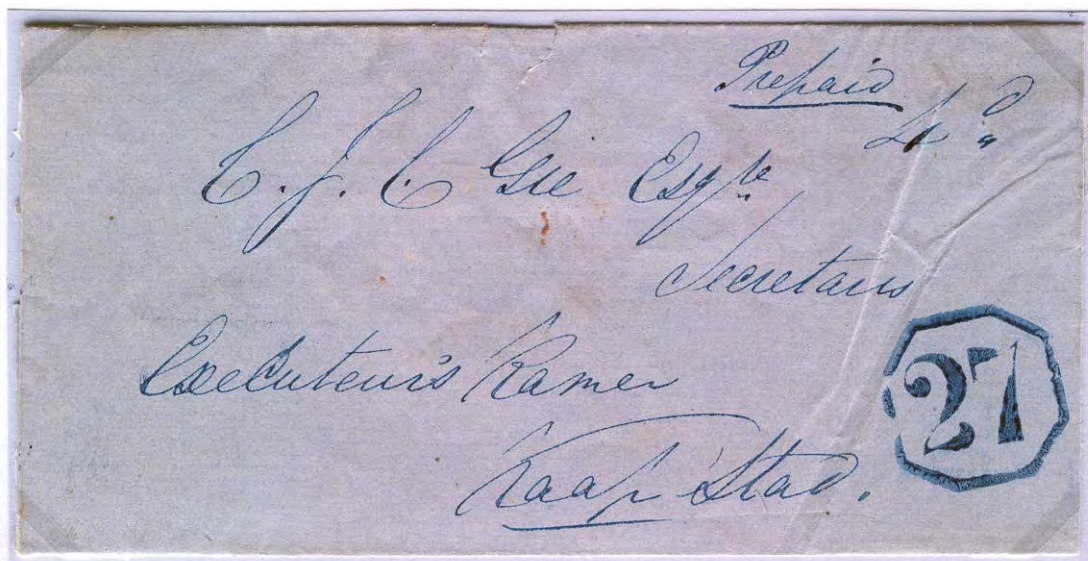 Prepaid
4d
C. J. C Gie Esqre
Secretaris
Executeurs Kamer
Kaap Stad.
27